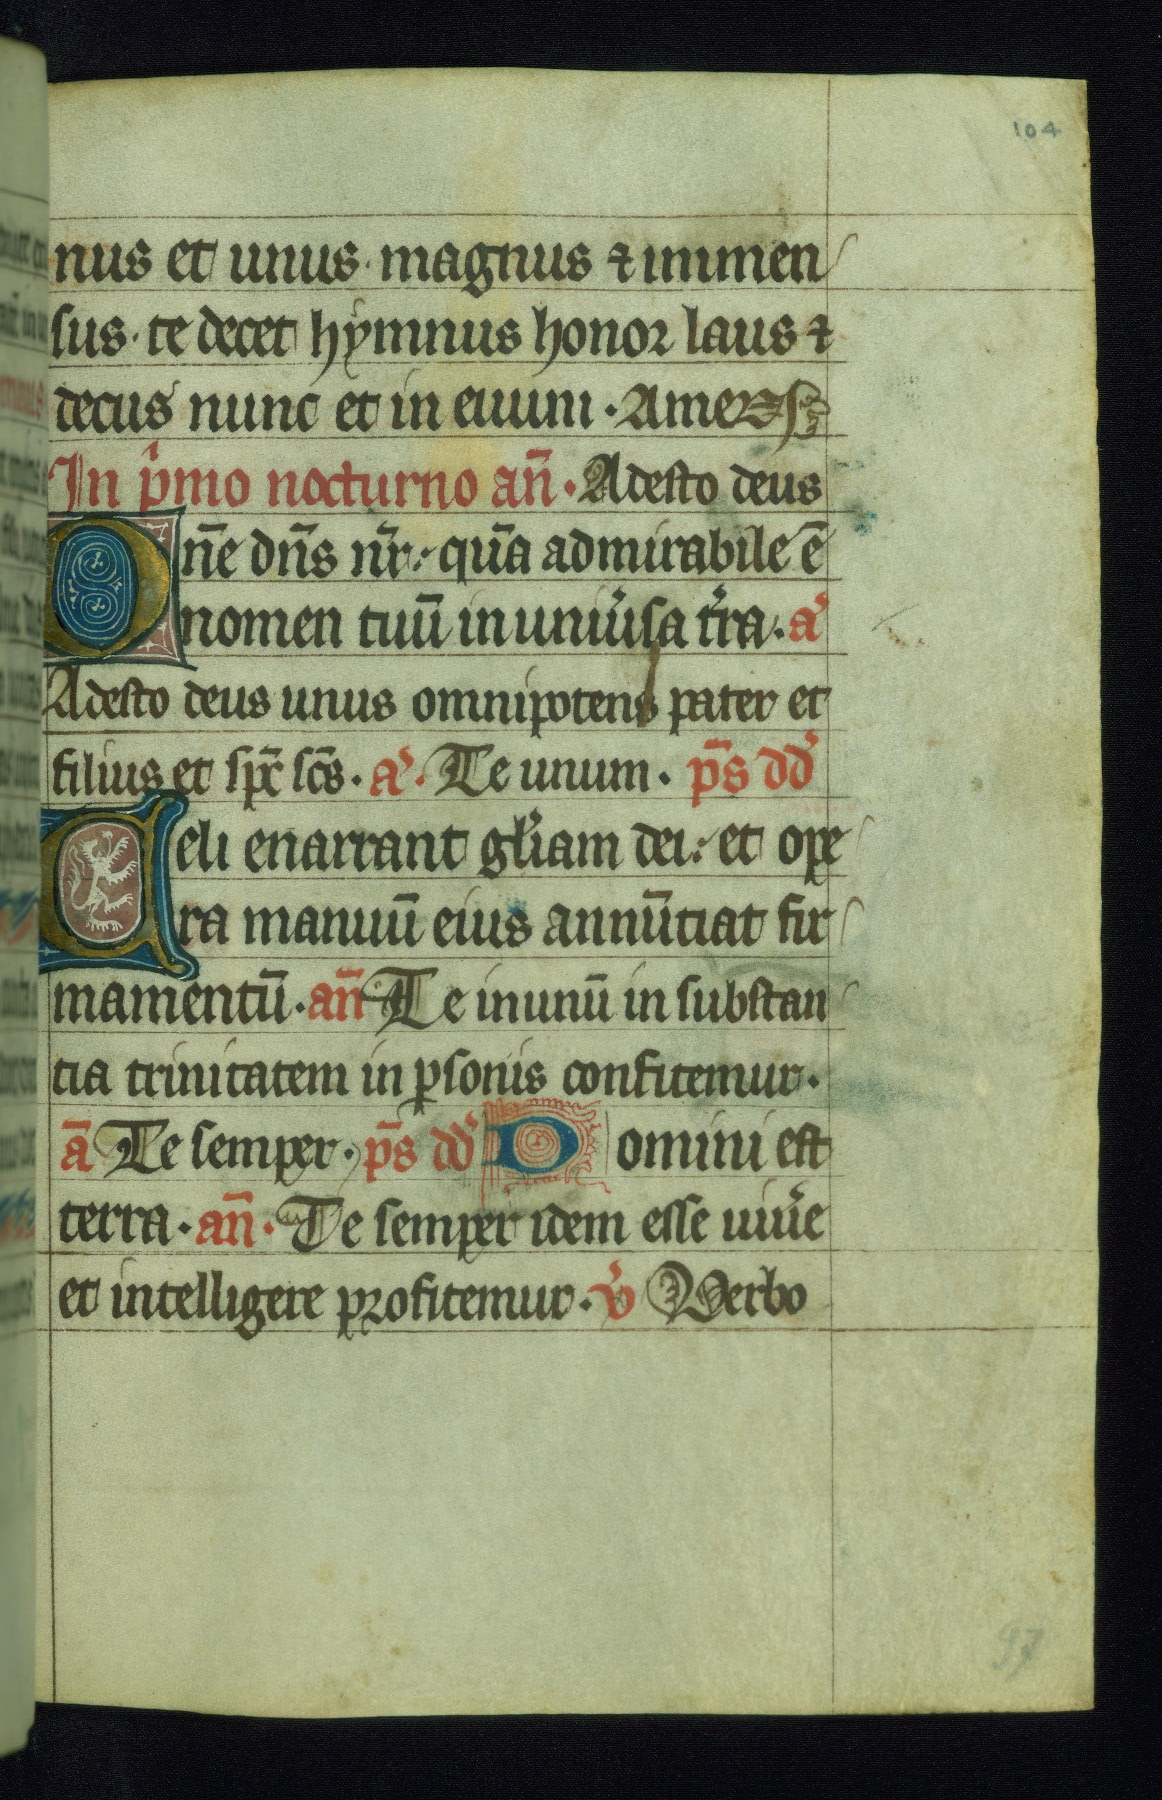 104
nus et unus· magnus ⁊ immen
sus· te decet hymnus honor laus ⁊
decus nunc et in euum · Amen
In p̾mo nocturno añ · Adesto deus
Dn̄e dn̄s nr̄ : qua̅ admirabile ē
nomen tuū in uniu̾sa t̾ra · a̾
Adesto deus unus omnipotens pater et
filius et sp̅c sc̄s · a̾ · Te unum · ps̄ dd̾
Celi enarrant gl̾iam dei : et ope
ra manuū eius annūciat fir
mamentū · añ Te in unū in substan
cia trinitatem in ꝑsonis confitemur ·
ā Te semper · ps̄ dd̾ Domini est
terra · añ · Te semper idem esse uiu̾e
et intelligere profitemur · v̾ Verbo
97